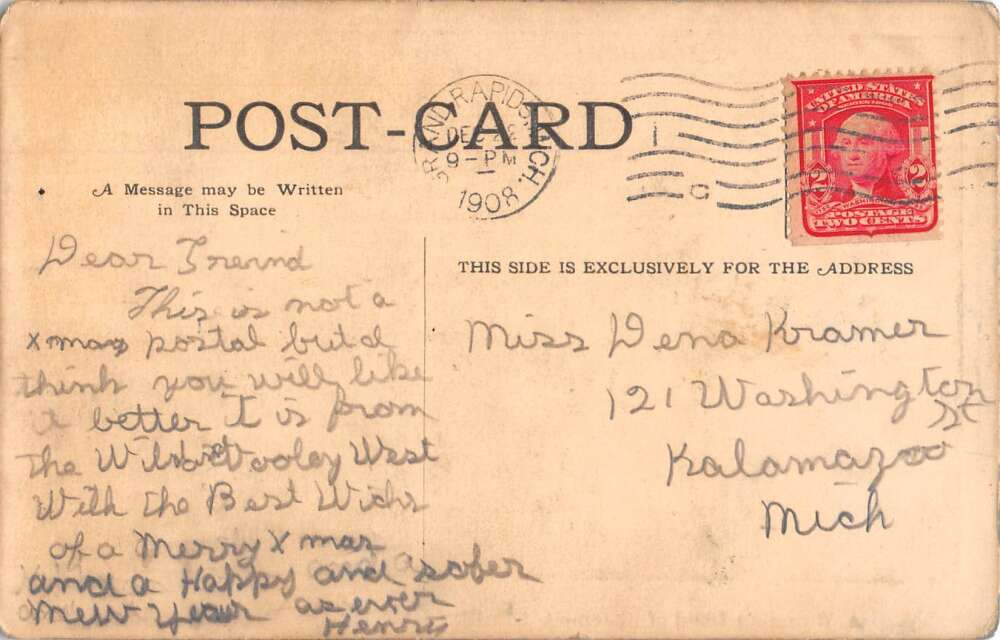 POST-CARD
GRAND RAPIDS, MICH.
DEC 22
9-PM
1908
UNITED STATES
OF AMERICA
2 2
POSTAGE
TWO CENTS
A Message may be Written
in This Space
THIS SIDE IS EXCLUSIVELY FOR THE ADDRESS
Dear Freind
This is not a
xmas postal but I
think you will like
it better It is from
the Wild & Wooley West
With the Best Wichs
of a Merry Xmas
and a Happy and sober
New Year as ever
Henry
Miss Dena Kramer
121 Washington
St
Kalamazoo
Mich